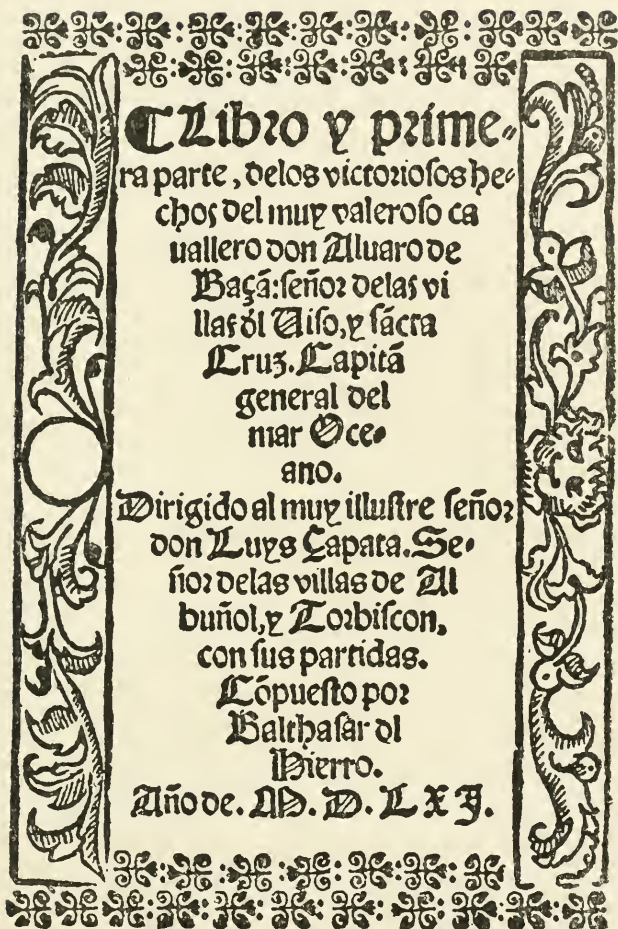 ¶Libro y prime-
ra parte, delos victoriosos he-
chos del muy valeroso ca
uallero don Aluaro de
Baçã: señor delas vi
llas ðl Uiso, y sãcta
Cruz. Capitã
general del
mar Oce-
ano.
Dirigido al muy illustre señor
don Luys Çapata. Se-
ñor delas villas de Al
buñol, y Torbiscon,
con sus partidas.
Cõpuesto por
Balthasar ðl
Hierro.
Año de. M. D. LXJ.